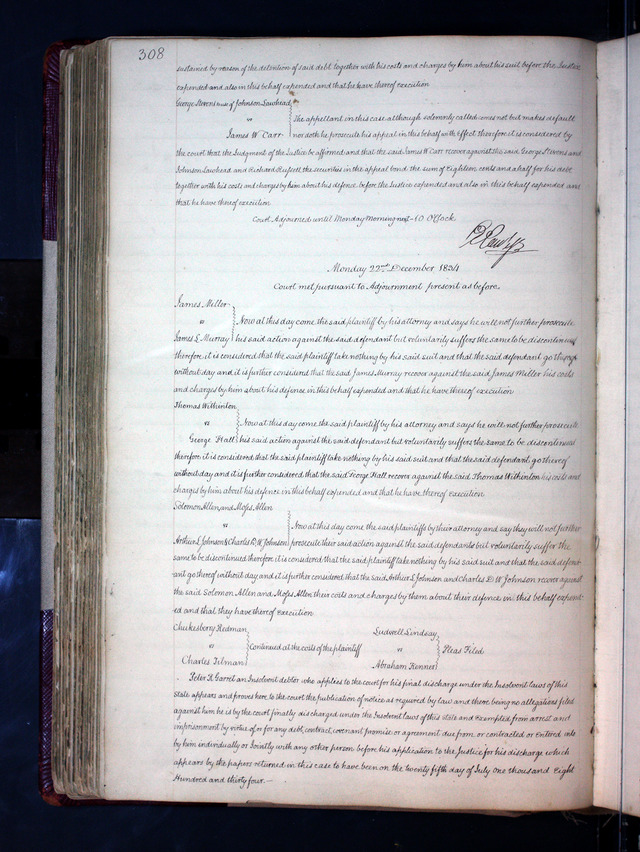 308
sustained by reason of the detention of said debt together with his costs and charges by him about his suit before the Justice
expended and also in this behalf expended and that he have thereof execution
George Stevens use of Johnson Lawhead
vs
James W Carr
The appellant in this case although solemnly called comes not but makes default
nor doth he prosecute his appeal in this behalf with effect therefore it is considered by
the court that the Judgment of the Justice be affirmed and that the said James W Carr recover against the said George Stevens and
Johnson Lawhead and Richard the securities in the appeal bond the sum of Eighteen cents and a half for his debt
together with his costs and charges by him about his defence before the Justice expended and also in this behalf expended and
that he have thereof execution
Court Adjourned until Monday Morning next 10 O'Clock
Monday 22nd December 1834
Court met pursuant to Adjournment present as before
James Miller
vs
James L Murray
Now at this day come the said plaintiff by his attorney and says he will not further prosecute
his said action against the said defendant but voluntarily suffers the same to be discontinued
therefore it is considered that the said plaintiff take nothing by his said suit and that the said defendant go thereof
without day and it is further considered that the said James Murray recover against the said James Miller his costs
and charges by him about his defence in this behalf expended and that he have thereof execution
Thomas Wilhinton
vs
George Hall
Now at this day come the said plaintiff by his attorney and says he will not further prosecute
his said action against the said defendant but voluntarily suffers the same to be discontinued
therefore it is considered that the said plaintiff take nothing by his said suit and that the said defendant go thereof
without day and it is further considered that the said George Hall recover against the said Thomas Wilhinton his costs and
charges by him about his defence in this behalf expended and that he have thereof execution
Solomon Allen and Moses Allen
vs
Arthur L Johnson & Charles D W Johnson
Now at this day come the said plaintiffs by their attorney and say they will not further
prosecute their said action against the said defendants but voluntarily suffer the
same to be discontinued therefore it is considered that the said plaintiff take nothing by his said suit and that the said defend-
ant go thereof without day and it is further considered that the said Arthur L Johnson and Charles D W Johnson recover against
the said Solomon Allen and Moses Allen their costs and charges by them about their defence in this behalf expend-
ed and that they have thereof execution
Chukesberry Redman
vs
Charles Tilman
Continued at the costs of the plaintiff
Ludwell Lindsay
vs
Abraham Renner
Pleas Filed
Peter R Garret an Insolvent debtor who applies to the court for his final discharge under the Insolvent laws of this
state appears and proves here to the court the publication of notice as required by law and there being no allegations filed
against him he is by the court finally discharged under the Insolvent laws of this state and Exempted from arrest and
imprisonment by virtue of or for any debt, contract, covenant promise or agreement due from or contracted or entered into
by him individually or Jointly with any other person before his application to the Justice for his discharge which
appears by the papers returned in this case to have been on the twenty fifth day of July one thousand Eight
Hundred and thirty four.—